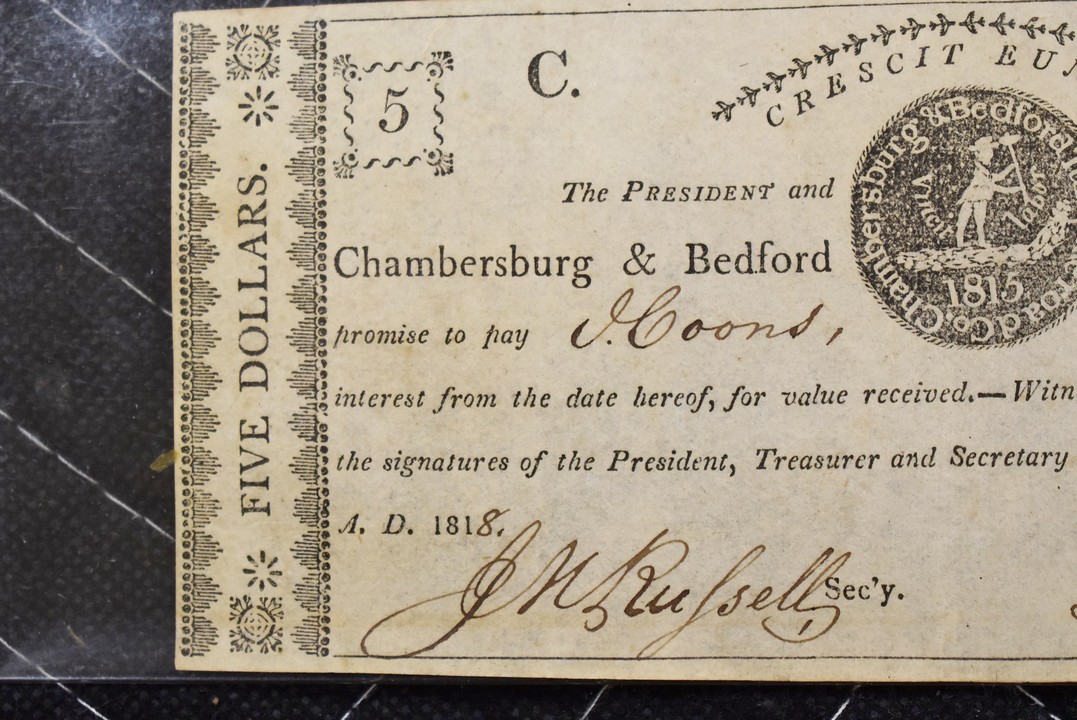 FIVE DOLLARS.
5
C.
CRESCIT EUN
Chambersburg & Bedford
Road Co.
labor
1815
The PRESIDENT and
Chambersburg & Bedford
promise to pay J. Coons,
interest from the date hereof, for value received.—Witn
the signatures of the President, Treasurer and Secretary
A. D. 1818.
J M Russell Sec'y.